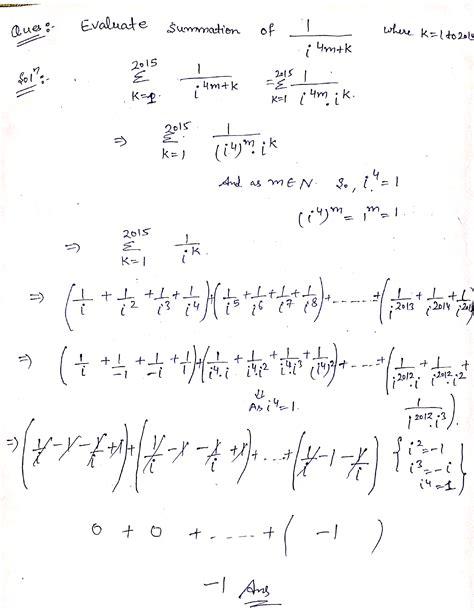 Ques:- Evaluate Summation of 1/i^(4m+k) where k=1 to 201
Sol^n:- 2015 Σ k=1 1/i^(4m+k) = 2015 Σ k=1 1/(i^4m . i^k)
⇒ 2015 Σ k=1 1/((i^4)^m . i^k)
And as m∈N. So, i^4=1
(i^4)^m = 1^m = 1.
⇒ 2015 Σ k=1 1/i^k.
⇒ (1/i + 1/i^2 + 1/i^3 + 1/i^4)+(1/i^5 + 1/i^6 + 1/i^7 + 1/i^8)+ ...... +(1/i^2013 + 1/i^2014 + 1/i^201
⇒ (1/i + 1/-1 + 1/-i + 1/1)+(1/(i^4.i) + 1/(i^4.i^2) + 1/(i^4.i^3) + 1/(i^4)^2)+ ... +(1/(i^2012.i) + 1/(i^2012.i^2) +
⇓
As i^4=1.
1/(i^2012.i^3))
⇒ (1/i - 1 - 1/i + 1)+(1/i - 1 - 1/i + 1)+ ... +(1/i - 1 - 1/i) { i^2=-1
i^3=-i
i^4=1 }
0 + 0 + ...... + ( -1 )
-1 Ans